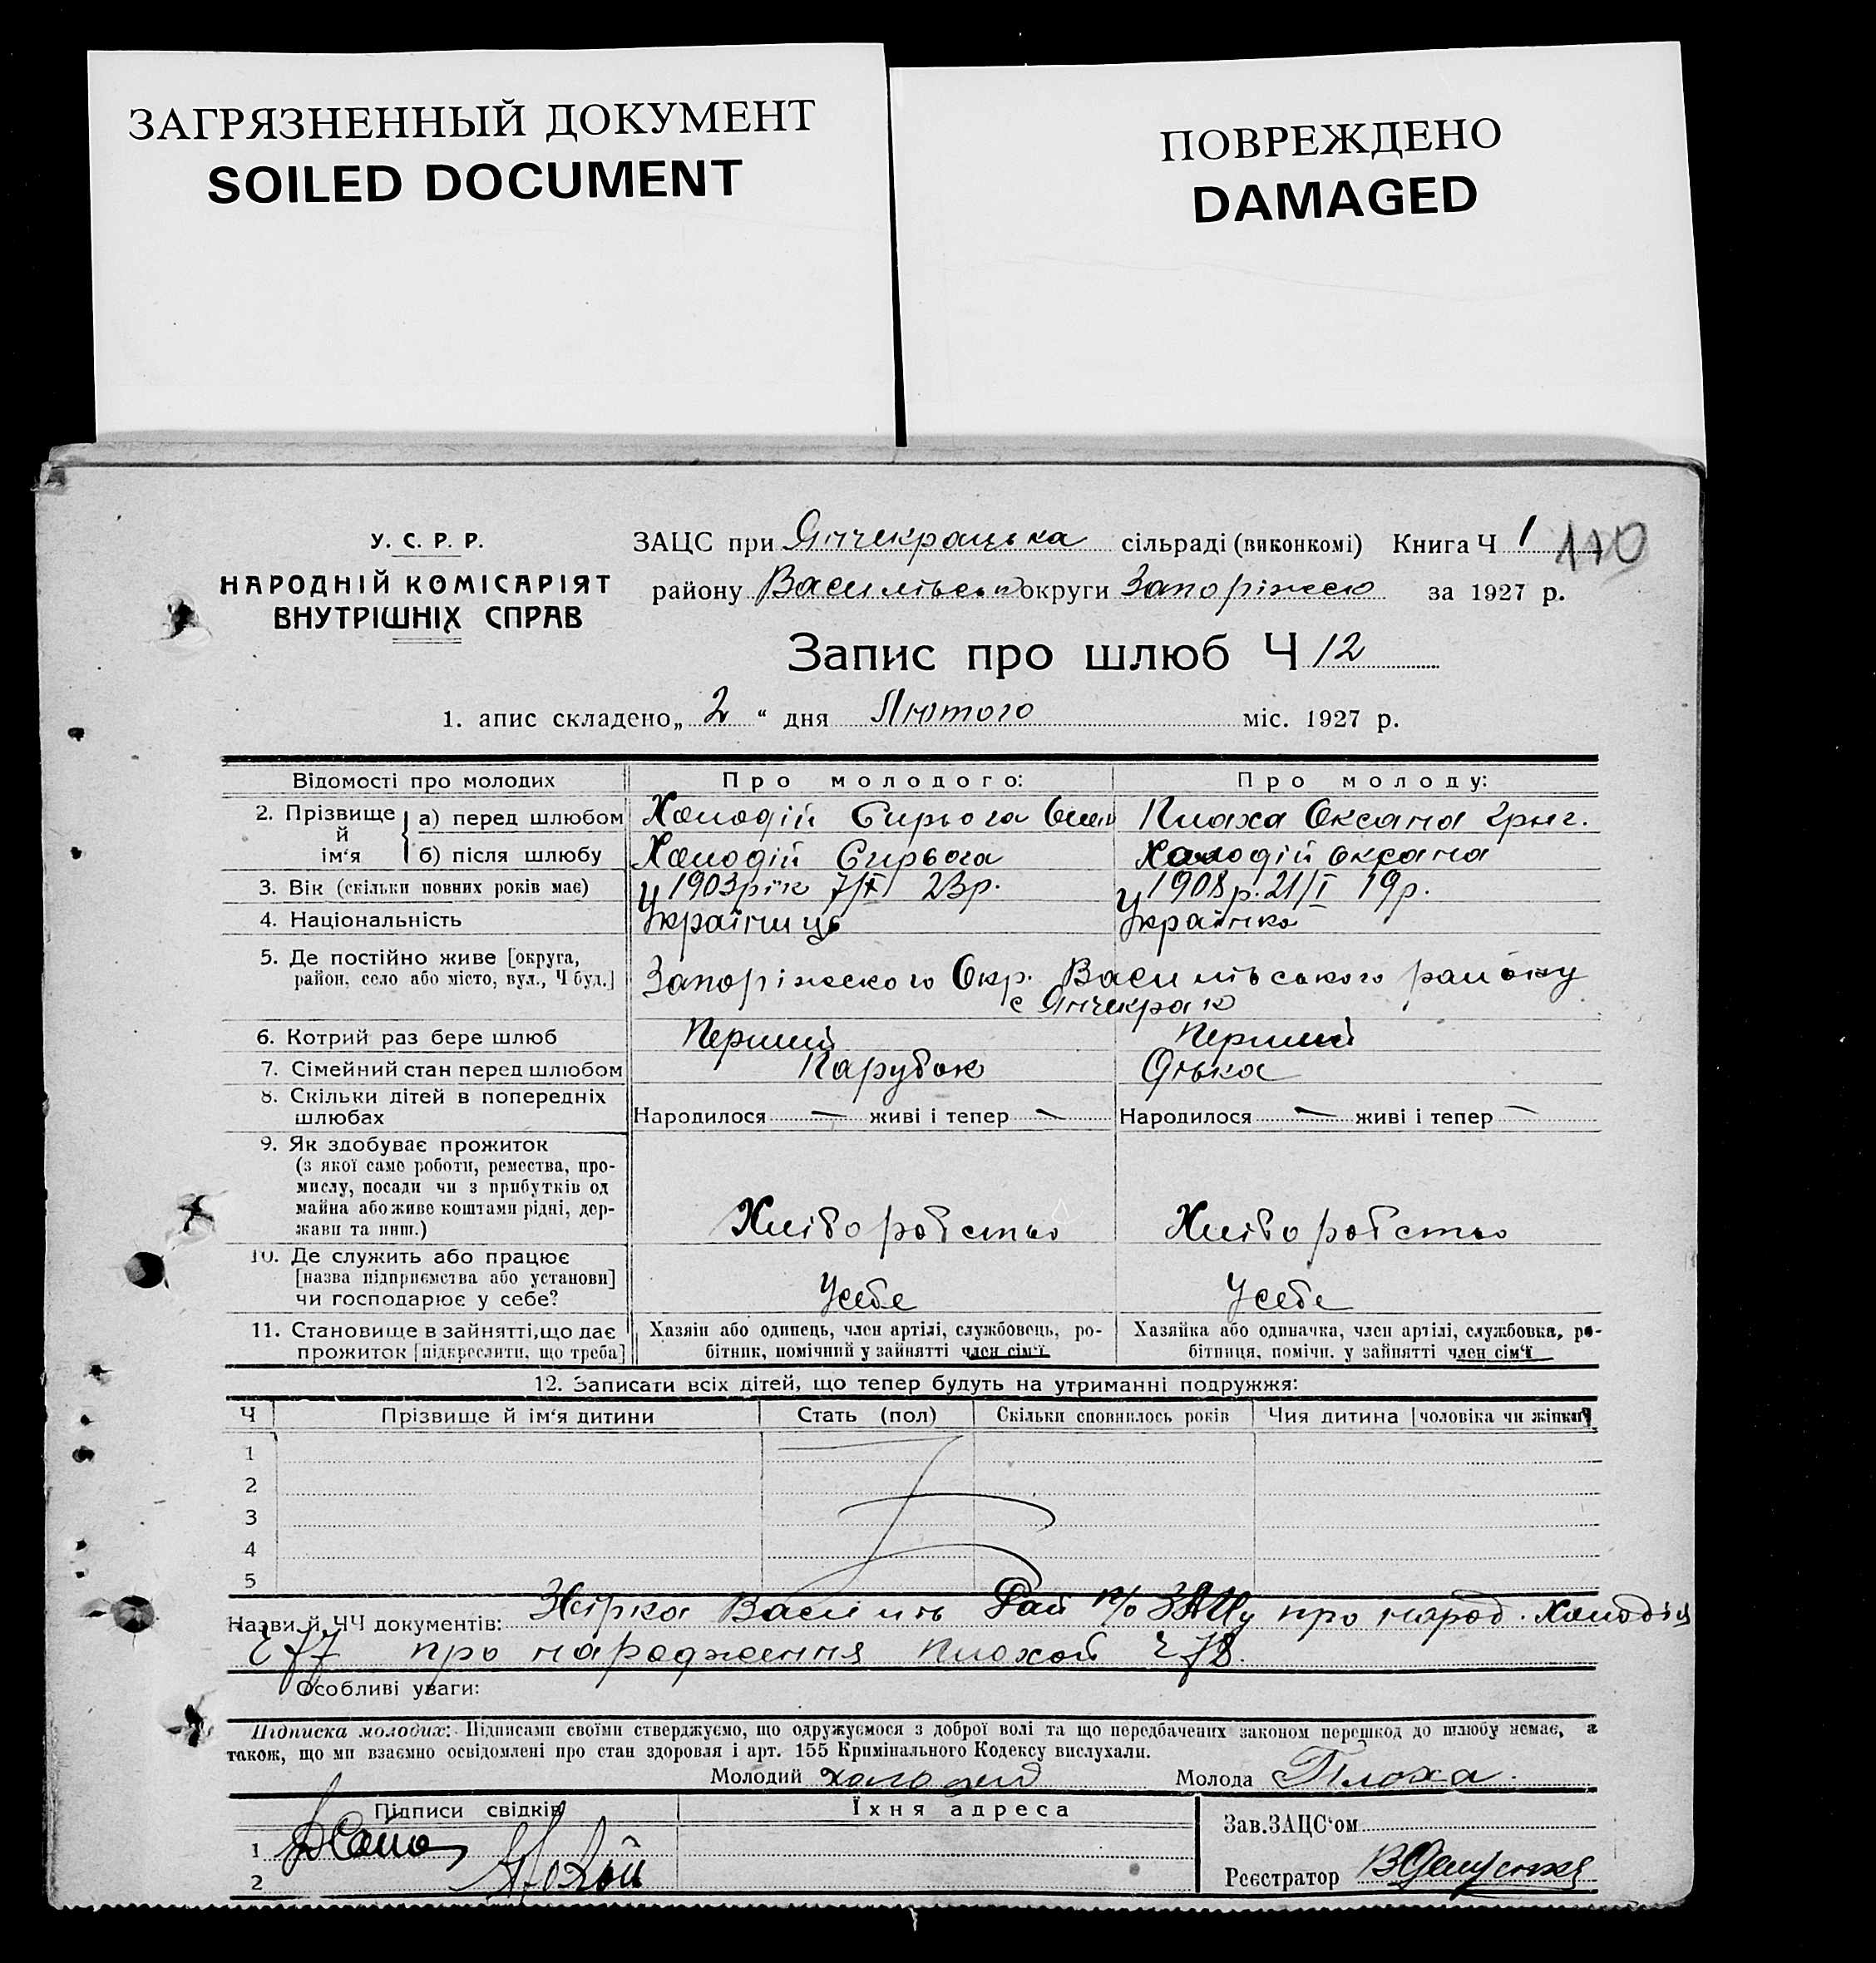 ЗАГРЯЗНЕННЫЙ ДОКУМЕНТ
SOILED DOCUMENT
ПОВРЕЖДЕНО
DAMAGED
У. С. Р. Р.
НАРОДНІЙ КОМІСАРІЯТ
ВНУТРІШНІХ СПРАВ
ЗАЦС при Янчекрацька сільраді (виконкомі) Книга Ч 1 110
району Васильвськ округи Запоріжск за 1927 р.
Запис про шлюб Ч 12
1. апис складено „ 2 “ дня Лютого міс. 1927 р.
Відомості про молодих Про молодого: Про молоду:
2. Прізвище й ім‘я а) перед шлюбом Холодій Сирьога Плаха Оксана Григ.
б) після шлюбу Холодій Сирьога Холодій Оксана
3. Вік (скільки повних років має) 1903 рік 7/X 23 р. 1908 р. 21/I 19 р.
4. Національність Україниць Українка
5. Де постійно живе [округа,
район, село або місто, вул., Ч буд.] Запоріжского Окр. Васильвського району
с Янчекрак
6. Котрий раз бере шлюб Перший Перший
7. Сімейний стан перед шлюбом Парубок Дівка
8. Скільки дітей в попередніх
шлюбах Народилося — живі і тепер — Народилося — живі і тепер —
9. Як здобуває прожиток
(з якої само роботи, ремества, про-
мислу, посади чи з прибутків од
майна або живе коштами рідні, дер-
жави та инш.) Хлібо робство Хлібо робство
10. Де служить або працює
[назва підприємства або установи]
чи господарює у себе? У себе У себе
11. Становище в зайнятті, що дає
прожиток [підкреслити, що треба]
Хазяїн або одинець, член артілі, службовець, ро-
бітник, помічний у зайнятті член сім‘ї
Хазяйка або одиначка, член артілі, службовка, ро-
бітниця, помічн. у зайнятті член сім‘ї
12. Записати всіх дітей, що тепер будуть на утриманні подружжя:
Ч Прізвище й ім‘я дитини Стать (пол) Скільки сповнилось років Чия дитина [чоловіка чи жінки]
1
2
3
4
5
Назви й ЧЧ документів: Василь Рай про народ. Холодія
Ч 77 про народження Плохой Ч 78.
Особливі уваги:
Підписка молодих: Підписами своїми стверджуємо, що одружуємося з доброї волі та що передбачених законом перешкод до шлюбу немає, а
також, що ми взаємно освідомлені про стан здоровля і арт. 155 Кримінального Кодексу вислухали.
Молодий Молода Плоха.
Підписи свідків Їхня адреса
Зав. ЗАЦС‘ом
1
2
Реєстратор